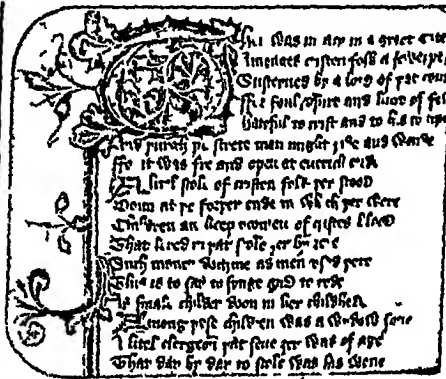 was in asy in a gret cite
Amonges cristen folk a
Susteened by a lord of þat
foul vsure and lucre of
hateful to crist and to his
And þurgh þe strete men might ride and wende
For it was fre and open at euerich ende
A litel scole of cristen folk þer stood
Doun at þe forþer ende in which þer were
Children an heep of cristen blood
That lered in þat scole yer by yere
Such maner doctrine as men vsed þere
This is to say to singe and to rede
As smale childer doon in her childhede
Among þese children was a widow sone
A litel clergeon þat seue yer was of age
That day by day to scole was his wone